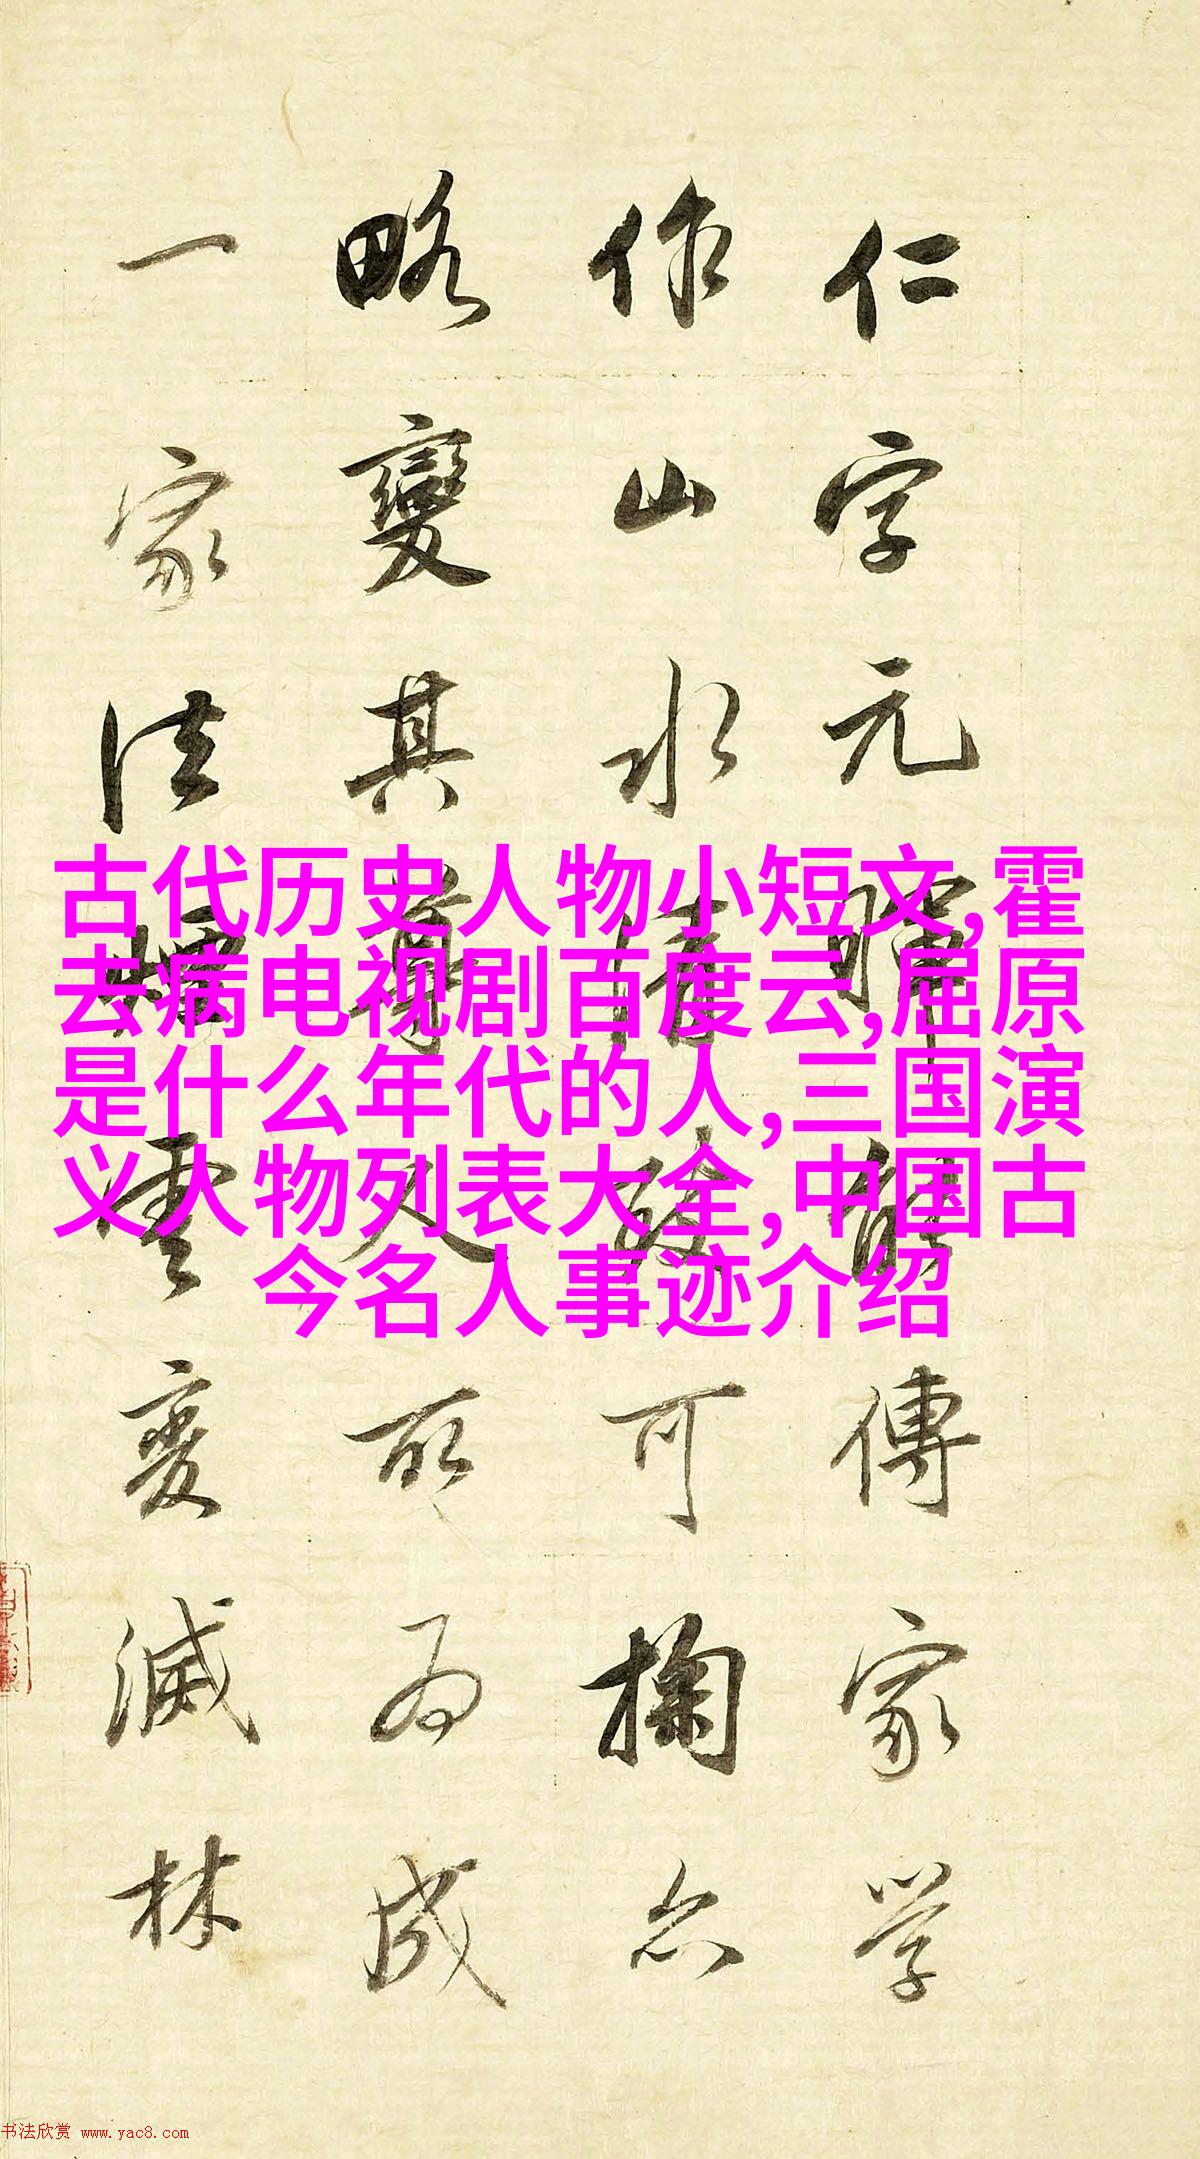 仁字元暉能傳家學
作山水清致可掬亦
略變其尊人所為成
一家法烟雲變滅林
古代历史人物小短文,霍
去病电视剧百度云,屈原
是什么年代的人,三国演
义人物列表大全,中国古
今名人事迹介绍
书法欣赏 www.yac8.com